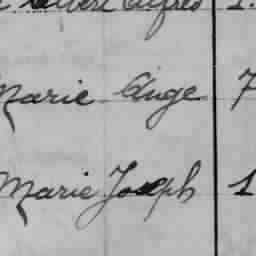 Albert Alfred 1.
Marie Ange 7
Marie Joseph 1